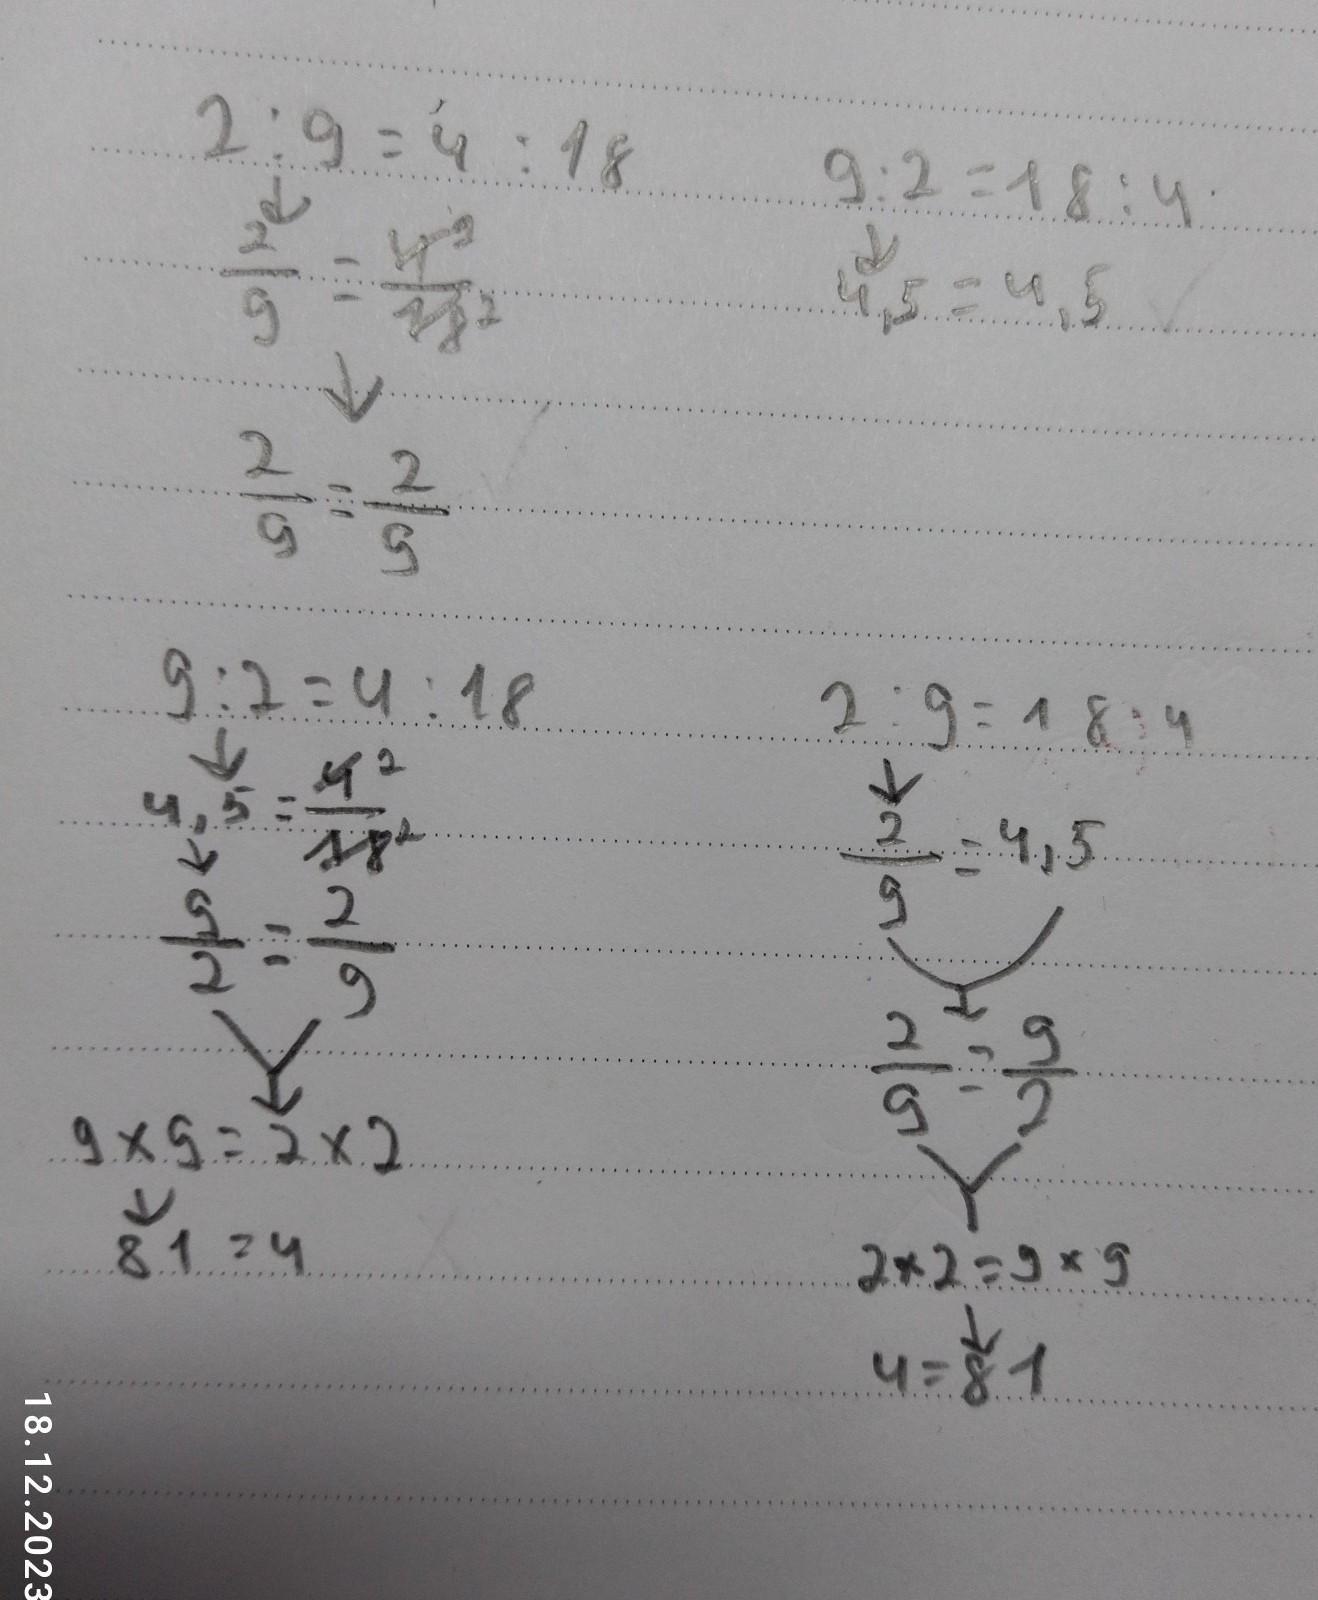 2 : 9 = 4 : 18
↓
2/9 = 4/18 2
↓
2/9 = 2/9
9 : 2 = 18 : 4
↓
4,5 = 4,5
9 : 2 = 4 : 18
↓
4,5 = 4 2/18 2
↓
9/2 = 2/9
↓
9 × 9 = 2 × 2
↓
81 = 4
2 : 9 = 18 : 4
↓
2/9 = 4,5
↓
2/9 = 9/2
2 × 2 = 9 × 9
↓
4 = 81
18.12.2023